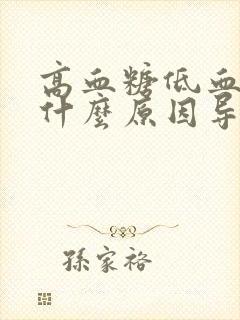 高血糖低血
什麼原因导
孫家裕